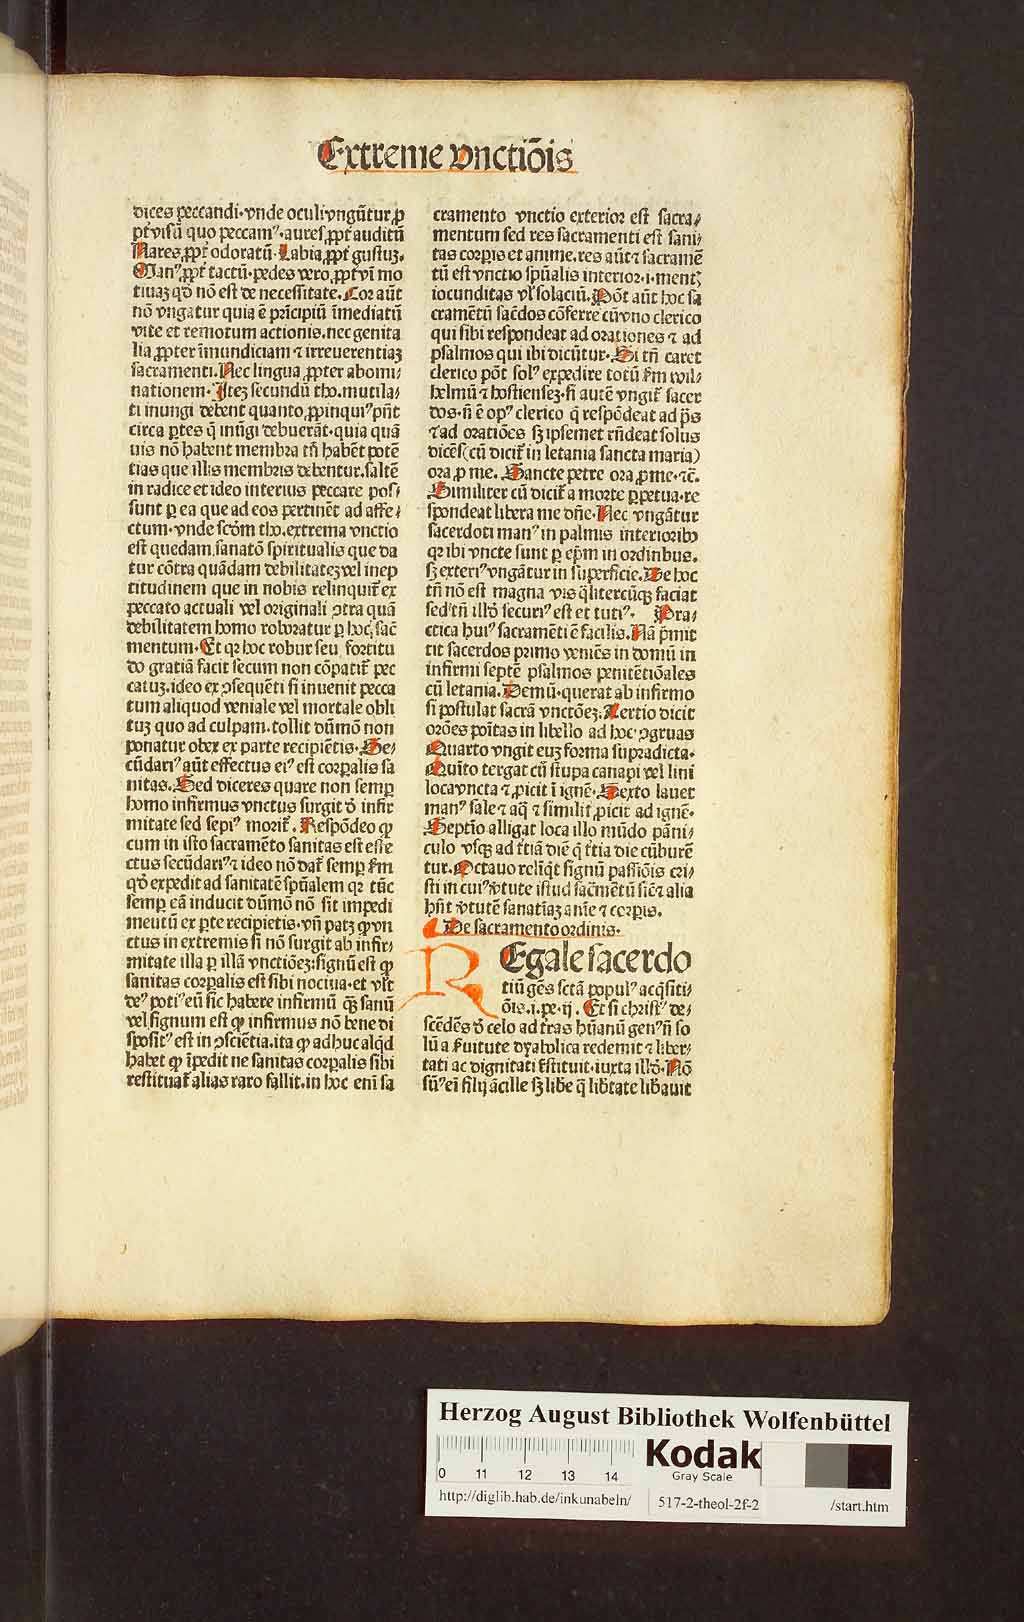 Extreme vnctiōis
dices peccandi·vnde oculi vngūtur ꝓ
pť visū quo peccamꝰ·aures ꝓpť auditū
Nares ꝓpť odoratū·Labia ꝓpť gustuꝫ.
Manꝰ ꝓpť tactū·pedes vero ꝓpť vim mo
tiuaꝫ qđ nō est de necessitate. Cor aūt
nō vngatur quia ē prīcipiū īmediatū
vite et remotum actionis. nec genita
lia ꝓpter īmundiciam ⁊ irreuerentiaꝫ
sacramenti. Nec lingua ꝓpter abomi⸗
nationem· Iteꝫ secundū tho. mutila⸗
ti inungi debent quanto ꝓpinquiꝰ pn̄t
circa ꝑtes q̄ inūgi debuerāt·quia quā
uis nō habent membra tn̄ habēt potē
tias que illis membris debentur. saltē
in radice et ideo interius peccare pos⸗
sunt ꝑ ea que ad eos pertinēt ad affe⸗
ctum·vnde scd̄m tho. extrema vnctio
est quedam sanatō spiritualis que da
tur cōtra quādam debilitateꝫ vel inep
titudinem que in nobis relinquiť ex
peccato actuali vel originali ꝯtra quā
debilitatem homo roboratur ꝑ hoc sac̄
mentum· Et qꝛ hoc robur seu fortitu
do gratiā facit secum non cōpatiť pec
catuꝫ. ideo ex ꝯsequēti si inuenit pecca
tum aliquod veniale vel mortale obli
tuꝫ quo ad culpam. tollit dūmō non
ponatur obex ex parte recipiētis· Se⸗
cūdariꝰ aūt effectus eiꝰ est corꝑalis sa
nitas. Sed diceres quare non semꝑ
homo infirmus vnctus surgit ď infir
mitate sed sepiꝰ moriť. Respōdeo ꝙ
cum in isto sacramēto sanitas est effe
ctus secūdariꝰ ⁊ ideo nō dať semꝑ ẜm
qđ expedit ad sanitatē spūalem qꝛ tūc
semꝑ eā inducit dūmō nō sit impedi
mētū ex ꝑte recipiētis· vn̄ patꝫ ꝙ vn
ctus in extremis si nō surgit ab infir⸗
mitate illa ꝑ illā vnctiōeꝫ: signū est ꝙ
sanitas corꝑalis est sibi nociua·et vťr
deꝰ potiꝰ eū sic habere infirmū q̄ꝫ sanū
vel signum est ꝙ infirmus nō bene di
spositꝰ est in ꝯsciētia. ita ꝙ adhuc alqđ
habet ꝙ īpedit ne sanitas corꝑalis sibi
restituať alias raro fallit. in hoc enī sa
cramento vnctio exterior est sacra⸗
mentum sed res sacramenti est sani⸗
tas corꝑis et anime. res aūt ⁊ sacramē
tū est vnctio spūalis interior·i·mentꝭ
iocunditas vl̄ solaciū. Pōt aūt hoc sa
cramētū sac̄dos cōferre cū vno clerico
qui sibi respondeat ad orationes ⁊ ad
psalmos qui ibi dicūtur· Si tn̄ caret
clerico pōt solꝰ expedire totū ẜm wil⸗
helmū ⁊ hostienseꝫ·si autē vngiť sacer
dos·n̄ ē opꝰ clerico q̄ respōdeat ad p̄s
⁊ ad oratiōes sꝫ ipsemet rn̄deat solus
dicēs (cū diciť in letania sancta maria)
ora ꝓ me. Sancte petre ora ꝓ me·⁊c̄.
Similiter cū diciť a morte ꝑpetua·re
spondeat libera me dn̄e· Nec vngātur
sacerdoti manꝰ in palmis interioribꝰ
qꝛ ibi vncte sunt ꝑ ep̄m in ordinbus.
sꝫ exteriꝰ vngātur in superficie. De hoc
tn̄ nō est magna vis q̄litercūqꝫ faciat
sed tn̄ illđ securiꝰ est et tutiꝰ. Pra⸗
ctica huiꝰ sacramēti ē facilis. Nā p̄mit
tit sacerdos primo veniēs in domū in
infirmi septē psalmos penitētiōales
cū letania. Demū·querat ab infirmo
si postulat sacrā vnctōeꝫ. Tertio dicit
orōes poītas in libello ad hoc ꝯgruas
Quarto vngit euꝫ forma supradicta·
Quīto tergat cū stupa canapi vel lini
loca vncta ⁊ ꝓicit ī ignē· Sexto lauet
manꝰ sale ⁊ aq̄ ⁊ similiť ꝓicit ad ignē·
Septīo alligat loca illo mūdo pāni⸗
culo vsqꝫ ad ťtiā diē q̄ ťtia die cūburē
tur. Octauo relīqt signū passiōis cri⸗
sti in cuiꝰ v̄tute istud sac̄mētū sic̄ ⁊ alia
hn̄t v̄tutē sanatiuaꝫ anīe ⁊ corꝑis.
De sacramento ordinis·
REgale sacerdo
tiū gēs sc̄tā populꝰ acq̄siti⸗
ōis. i. pe· ij. Et si christꝰ de⸗
scēdēs ď celo ad ťras hūanū genꝰ n̄ so
lū a ẜuitute dyabolica redemit ⁊ liber⸗
tati ac dignitati ẜstituit·iuxta illđ· Nō
sūꝰ eī filij ācille sꝫ lib̄e q̄ lib̄tate lib̄auit
Herzog August Bibliothek Wolfenbüttel
0 11 12 13 14
Kodak
Gray Scale
http://diglib.hab.de/inkunabeln/ 517-2-theol-2f-2 /start.htm